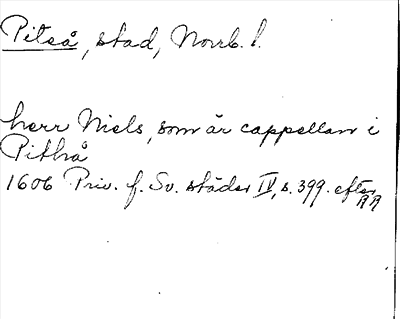 Piteå, stad, Norrb. l.
herr Niels, som är cappellan i
Pithå
1606 Priv. f. Sv. städer IV, s. 399. efter
RA